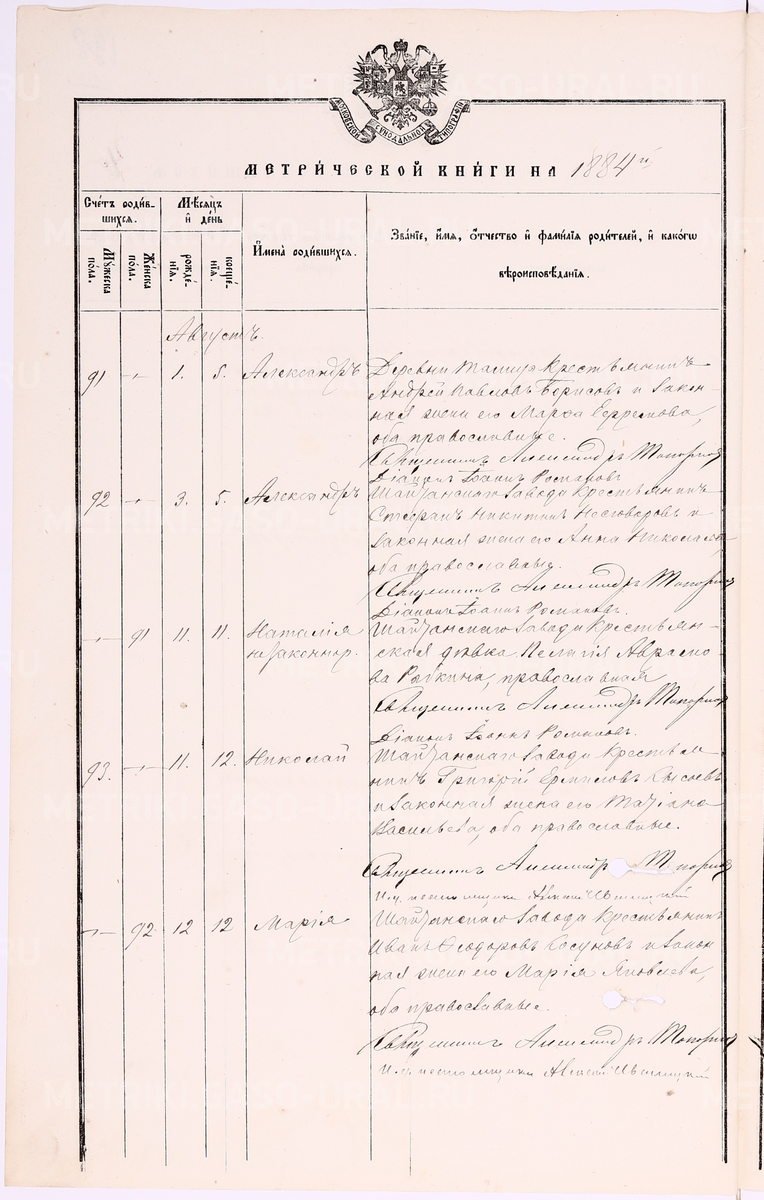 МОСКОВСКОЙ СѴНОДАЛЬНОЙ ТИПОГРАФІИ
МЕТРИЧЕСКОЙ КНИГИ НА 1884 й
Счетъ родив-
шихся.
Мѣсяцъ
и день
Мужеска
пола.
Женска
пола.
рожде-
нія.
креще-
нія.
Имена родившихся.
Званіе, имя, отчество и фамилія родителей, и какогѡ
вѣроисповѣданія.
Августъ.
91 " 1. 5. Александръ
Деревни Талицы крестьянинъ
Андрей Павловъ Борисовъ и закон-
ная жена его Марѳа Ефремова,
оба православные.
Священникъ Александръ Топорковъ
Діаконъ Іоаннъ Романовъ
92 " 3. 5. Александръ
Шайтанскаго завода крестьянинъ
Стефанъ Никитинъ и
законная жена его Анна Николаева
оба православные.
Священникъ Александръ
Діаконъ Іоаннъ Романовъ.
" 91 11. 11. Наталія
незаконнор.
Шайтанскаго завода крестьян-
ская дѣвка Пелагія
Рыбкина, православная
Священникъ Александръ
Діаконъ Іоаннъ Романовъ.
93. " 11. 12. Николай
Шайтанскаго завода крестья-
нинъ Григорій Ермиловъ
и законная жена его Татіана
Васильева, оба православные.
Священникъ Александръ
И. д. псаломщика Алексѣй
" 92 12 12 Марія
Шайтанскаго завода крестьянинъ
Иванъ Ѳеодоровъ и закон-
ная жена его Марія Яковлева,
оба православные.
Священникъ Александръ
И. д. псаломщика Алексѣй